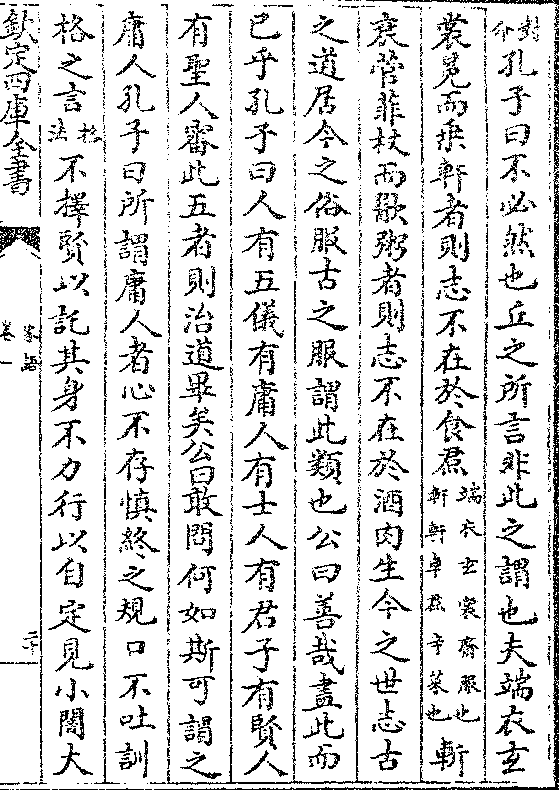 對命孔子曰不必然也丘之所言非此之謂也夫端衣玄
裳冕而乗軒者則志不在於食焄端衣玄裳齋服也軒軒車焄辛菜也斬
衰菅菲杖而歠粥者則志不在於酒肉生今之世志古
之道居今之俗服古之服謂此類也公曰善哉盡此而
已乎孔子曰人有五儀有庸人有士人有君子有賢人
有聖人審此五者則治道畢矣公曰敢問何如斯可謂之
庸人孔子曰所謂庸人者心不存慎終之規口不吐訓
格之言格法不擇賢以託其身不力行以自定見小闇大
欽定四庫全書
家語
卷一
二十